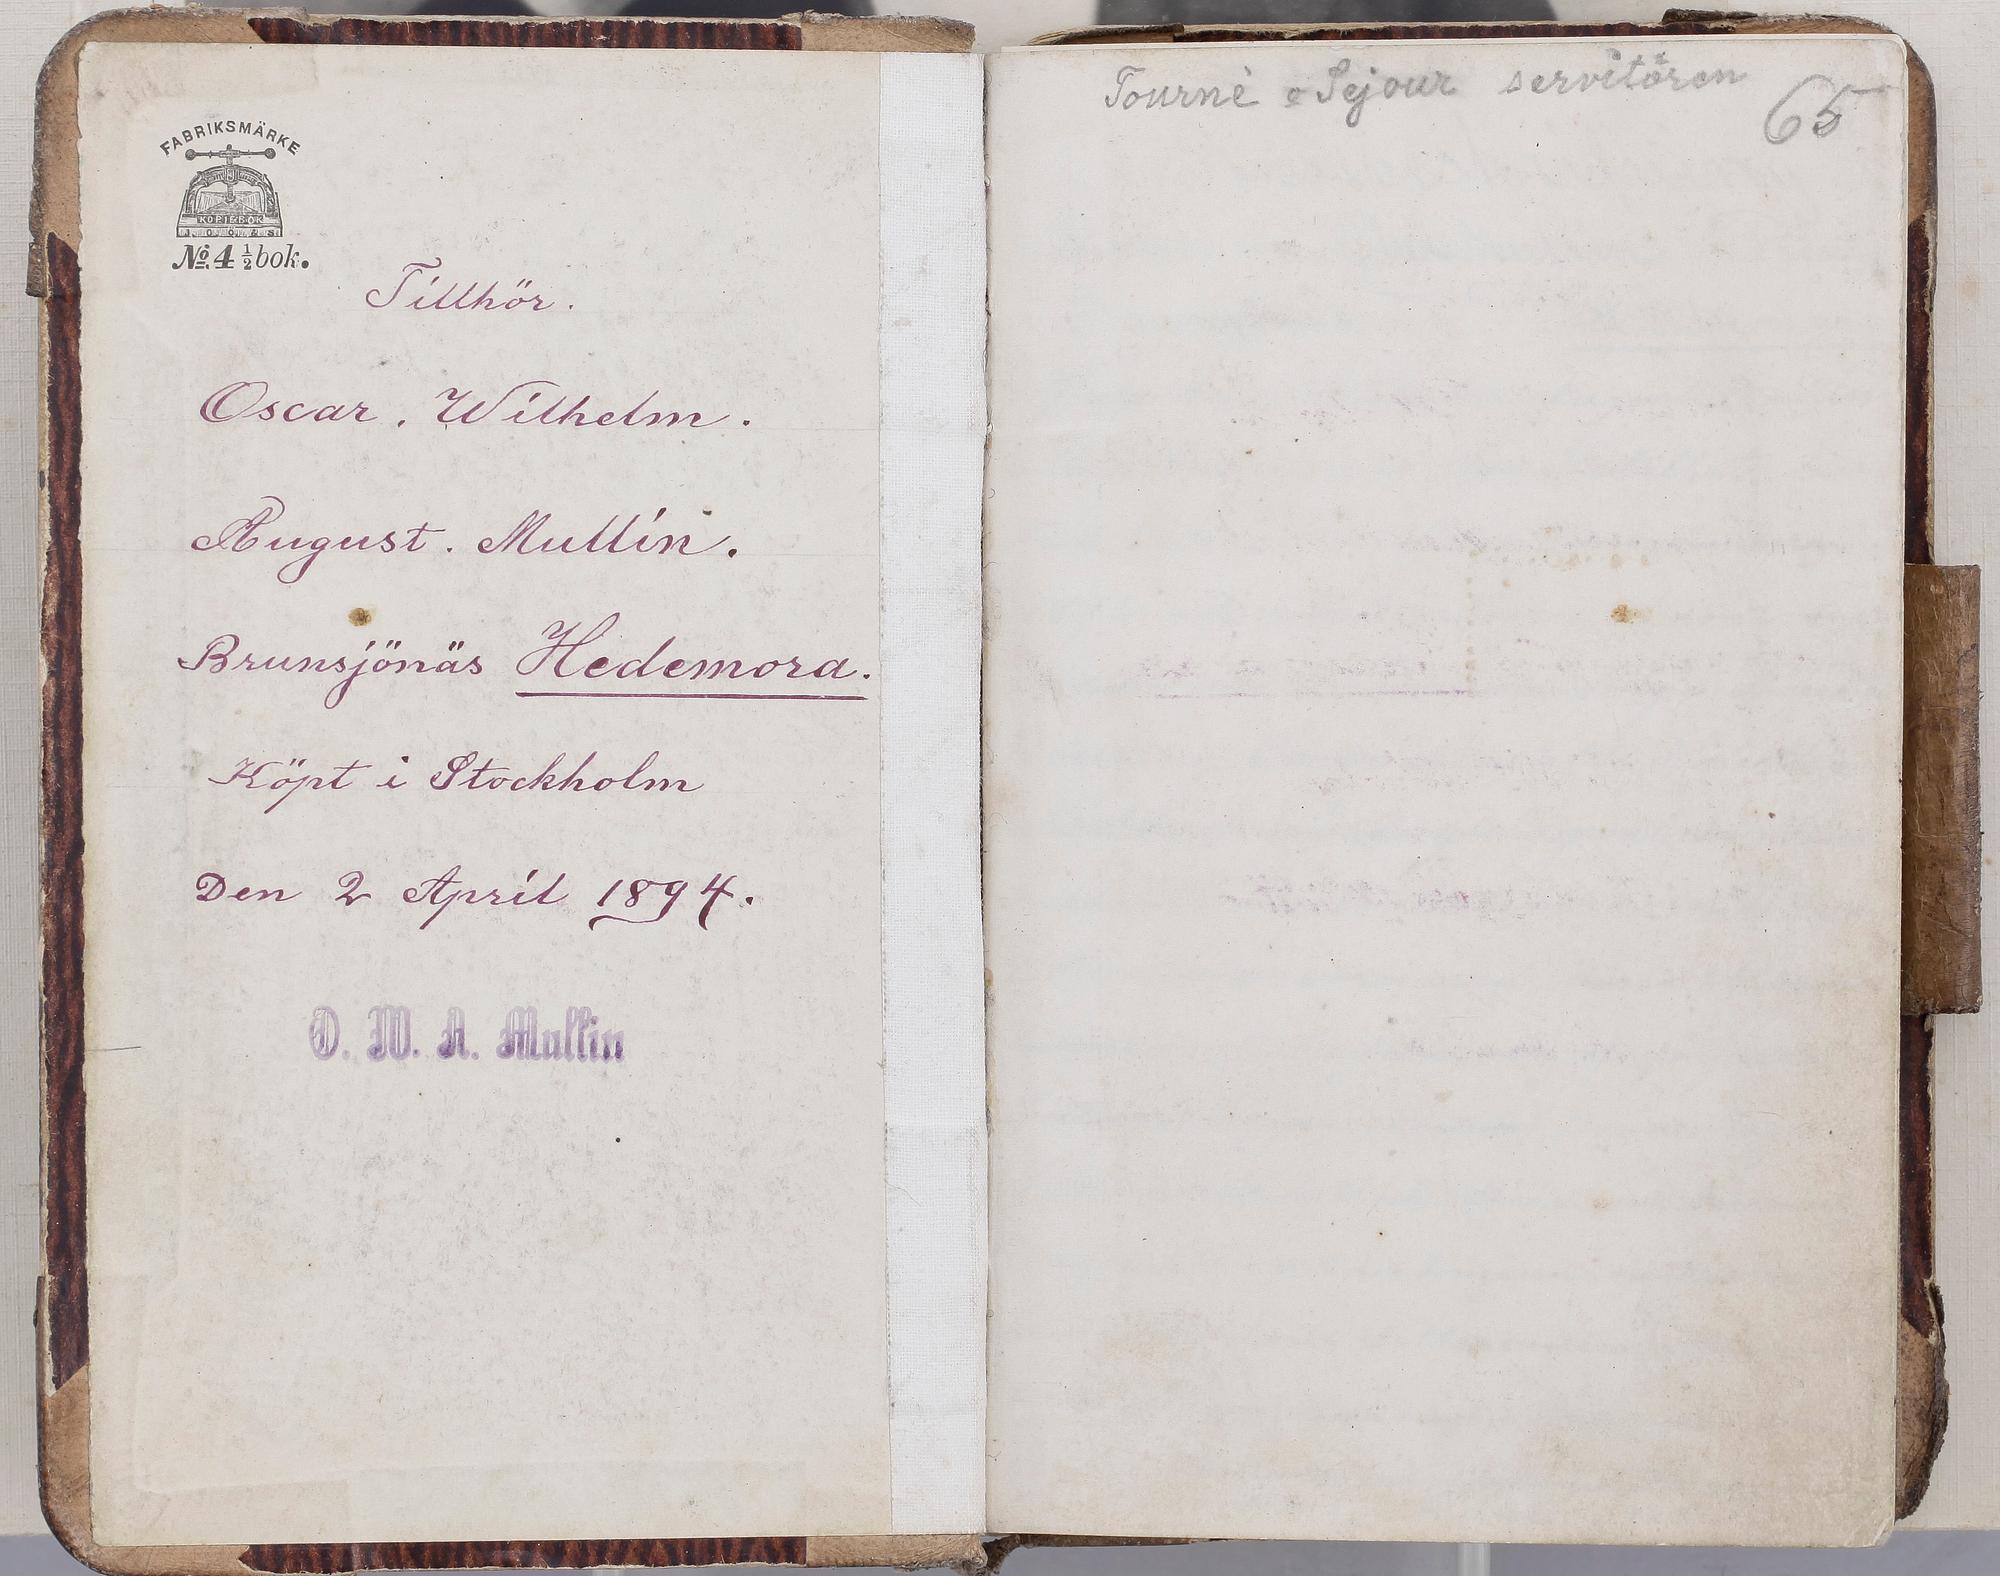 FABRIKSMÄRKE
KOPIEBOK
J. O. Ö. & S.
No. 4 ½ bok.
Tillhör.
Oscar. Wilhelm.
August. Mullin.
Brunsjönäs Hedemora.
Köpt i Stockholm
Den 2 April 1894.
O. W. A. Mullin
Tourné o Sejour servitören
65